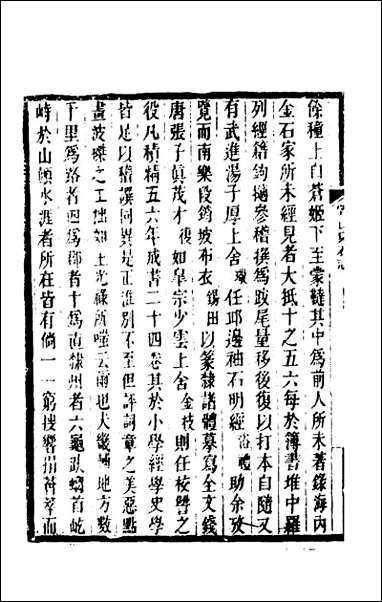 餘種上自蒼姬下至蒙韃其中為前人所未著錄海內
金石家所未經見者大抵十之五六每於簿書堆中羅
列經籍鉤摘參稽撰為跋尾量移後復以打本自隨又
有武進湯子厚上舍任邱邊袖石明經浴禮助余攷
覽而南樂段鈞坡布衣錫田以篆隸諸體摹寫全文錢
唐張子真茂才如皋宗少雲上舍金枝則任校讐之
役凡積精五六年成書二十四卷其於小學經學史學
皆足以稽譔同異是正淮別不至但評詞章之美惡點
畫波磔之工拙如王光祿所嗤云爾也大幾輔地方數
千里為路者四為郡者十為直隸州者六龜趺螭首屹
峙於山顛水涯者所在皆有倘一一窮搜響搨薈萃而